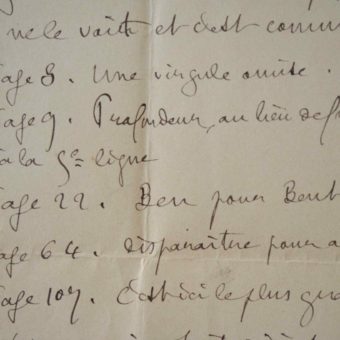 ne le voit et c'est comm
age 8. Une virgule omise.
age 9. Prafondeur, au lieu de
à la 5e ligne
age 22. Ben pour Bent
age 64. disparaître pour a
age 107. C'est ici le plus